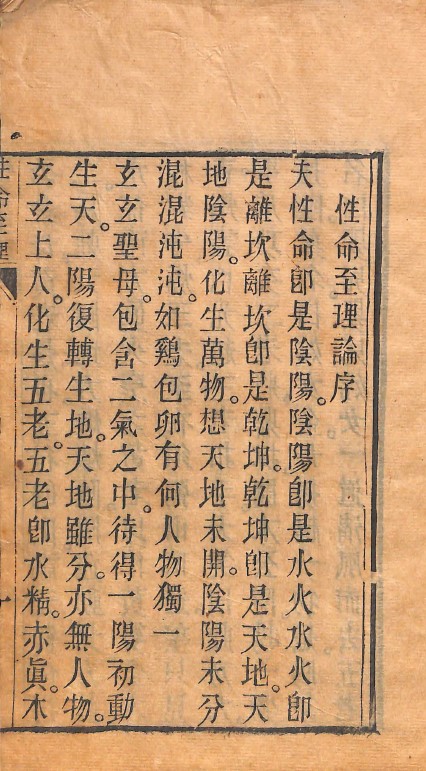 性命至理論序
夫性命卽是陰陽。陰陽卽是水火水火卽
是離坎離坎卽是乾坤。乾坤卽是天地。天
地陰陽。化生萬物。想天地未開。陰陽未分
混混沌沌。如鷄包卵有何人物獨一
玄玄聖母。包含二氣之中。待得一陽初動
生天。二陽復轉生地。天地雖分。亦無人物。
玄玄上人。化生五老。五老卽水精。赤眞。木
性命至理